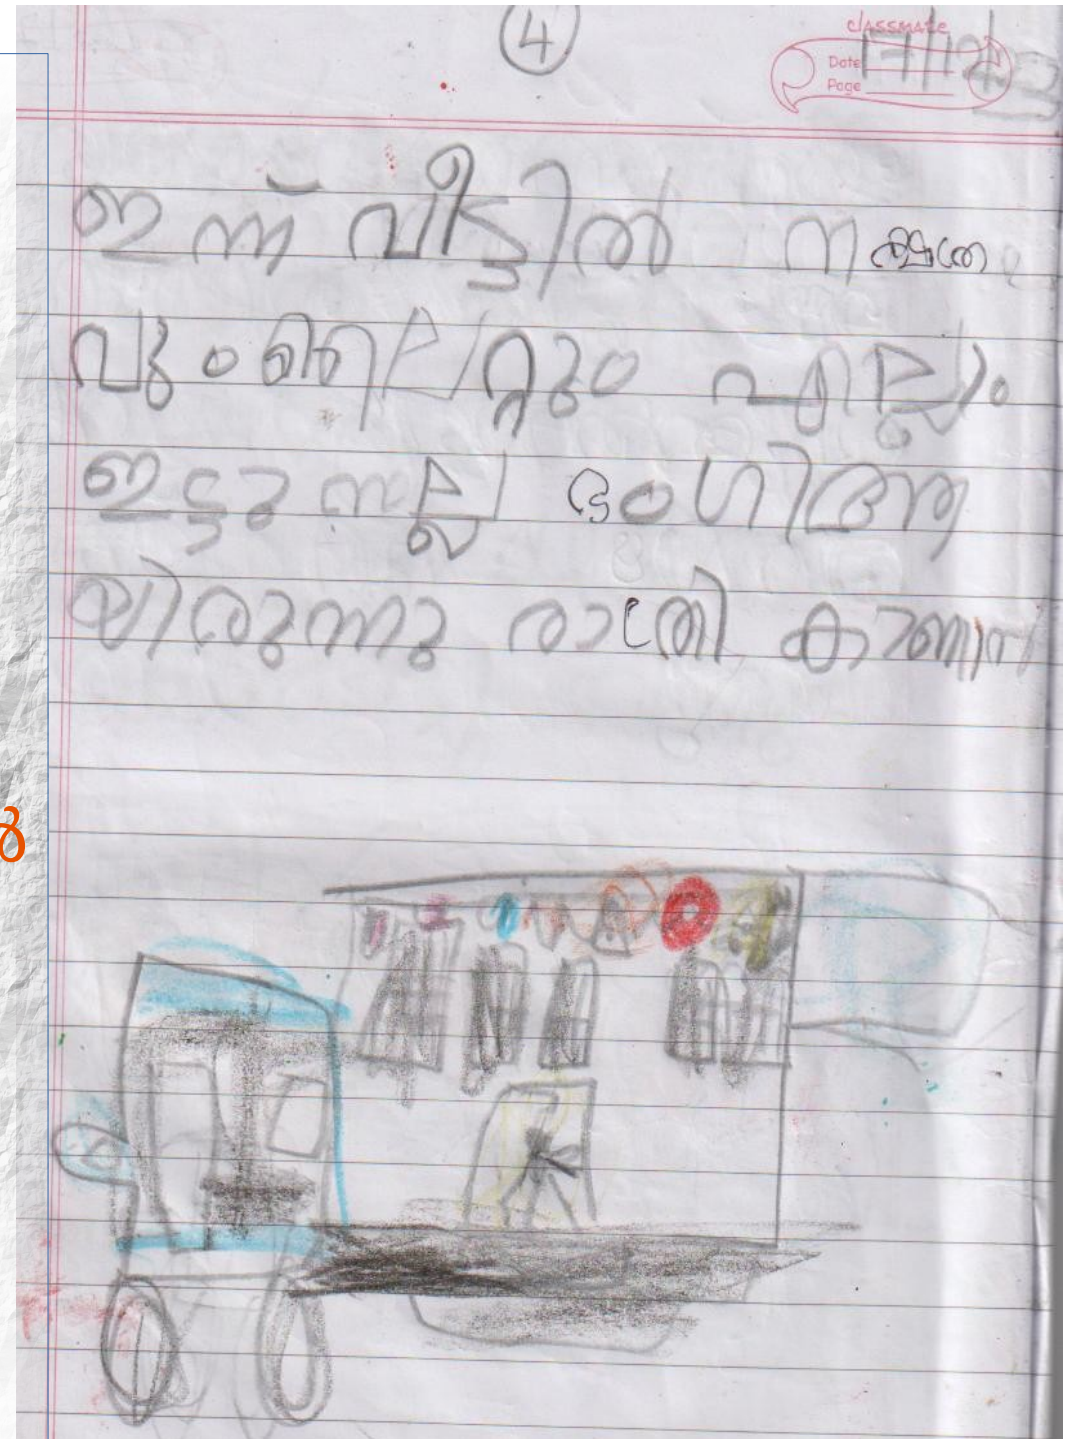 4
classmate
Date 17/12/23
Page
ഇന്ന് വീട്ടിൽ നക്ഷത്ര
വും ലൈറ്റും എല്ലാം
ഇട്ടു നല്ല ഭംഗിആ
യിരുന്നു രാത്രി കാണാൻ
ർ